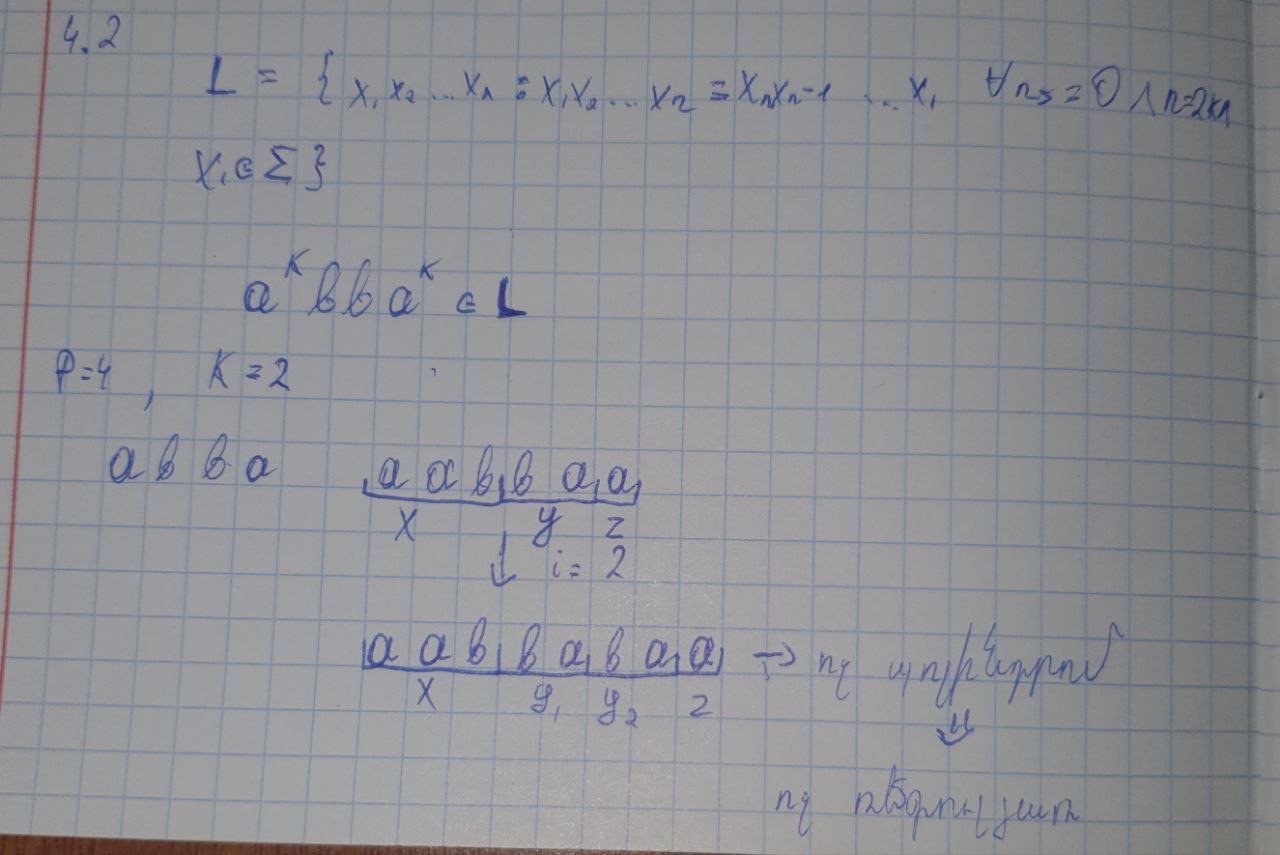 4.2
L = { x₁ x₂ ... xₙ : x₁x₂ ... xₙ = xₙxₙ₋₁ ... x₁ ∀n ≥ 0 ∧ n=2k ∧
x₁ ∈ Σ }
aᴷ b b aᴷ ∈ L
P=4 , K=2
a b b a a a b b a a
x y z
↓ i= 2
a a b b a b a a → ոչ պոլինդրոմ
x y₁ y₂ z ⇓
ոչ ռեգուլյար